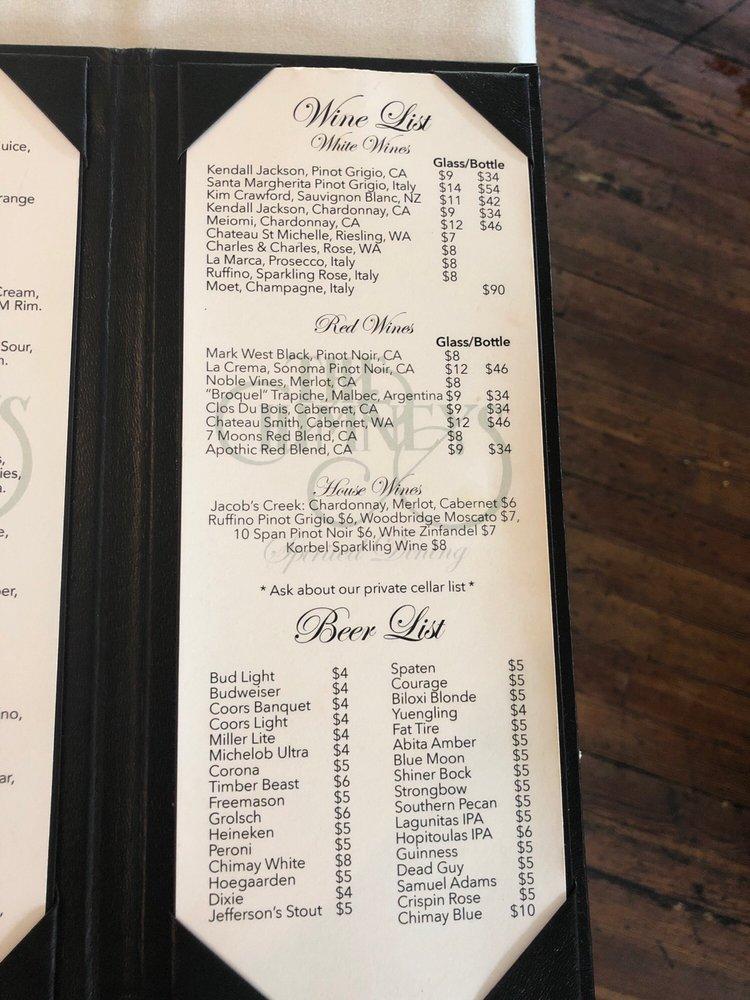 uice,
range
Cream,
M Rim.
Sour,
n.
s,
ies,
a.
e,
er,
no,
ar,
Wine List
White Wines
Glass/Bottle
Kendall Jackson, Pinot Grigio, CA $9 $34
Santa Margherita Pinot Grigio, Italy $14 $54
Kim Crawford, Sauvignon Blanc, NZ $11 $42
Kendall Jackson, Chardonnay, CA $9 $34
Meiomi, Chardonnay, CA $12 $46
Chateau St Michelle, Riesling, WA $7
Charles & Charles, Rose, WA $8
La Marca, Prosecco, Italy $8
Ruffino, Sparkling Rose, Italy $8
Moet, Champagne, Italy $90
Red Wines
Glass/Bottle
Mark West Black, Pinot Noir, CA $8
La Crema, Sonoma Pinot Noir, CA $12 $46
Noble Vines, Merlot, CA $8
"Broquel" Trapiche, Malbec, Argentina $9 $34
Clos Du Bois, Cabernet, CA $9 $34
Chateau Smith, Cabernet, WA $12 $46
7 Moons Red Blend, CA $8
Apothic Red Blend, CA $9 $34
House Wines
Jacob's Creek: Chardonnay, Merlot, Cabernet $6
Ruffino Pinot Grigio $6, Woodbridge Moscato $7,
10 Span Pinot Noir $6, White Zinfandel $7
Korbel Sparkling Wine $8
Spirited Dining
* Ask about our private cellar list *
Beer List
Bud Light $4
Budweiser $4
Coors Banquet $4
Coors Light $4
Miller Lite $4
Michelob Ultra $4
Corona $5
Timber Beast $6
Freemason $5
Grolsch $6
Heineken $5
Peroni $5
Chimay White $8
Hoegaarden $5
Dixie $4
Jefferson's Stout $5
Spaten $5
Courage $5
Biloxi Blonde $5
Yuengling $4
Fat Tire $5
Abita Amber $5
Blue Moon $5
Shiner Bock $5
Strongbow $5
Southern Pecan $5
Lagunitas IPA $5
Hopitoulas IPA $6
Guinness $5
Dead Guy $5
Samuel Adams $5
Crispin Rose $5
Chimay Blue $10